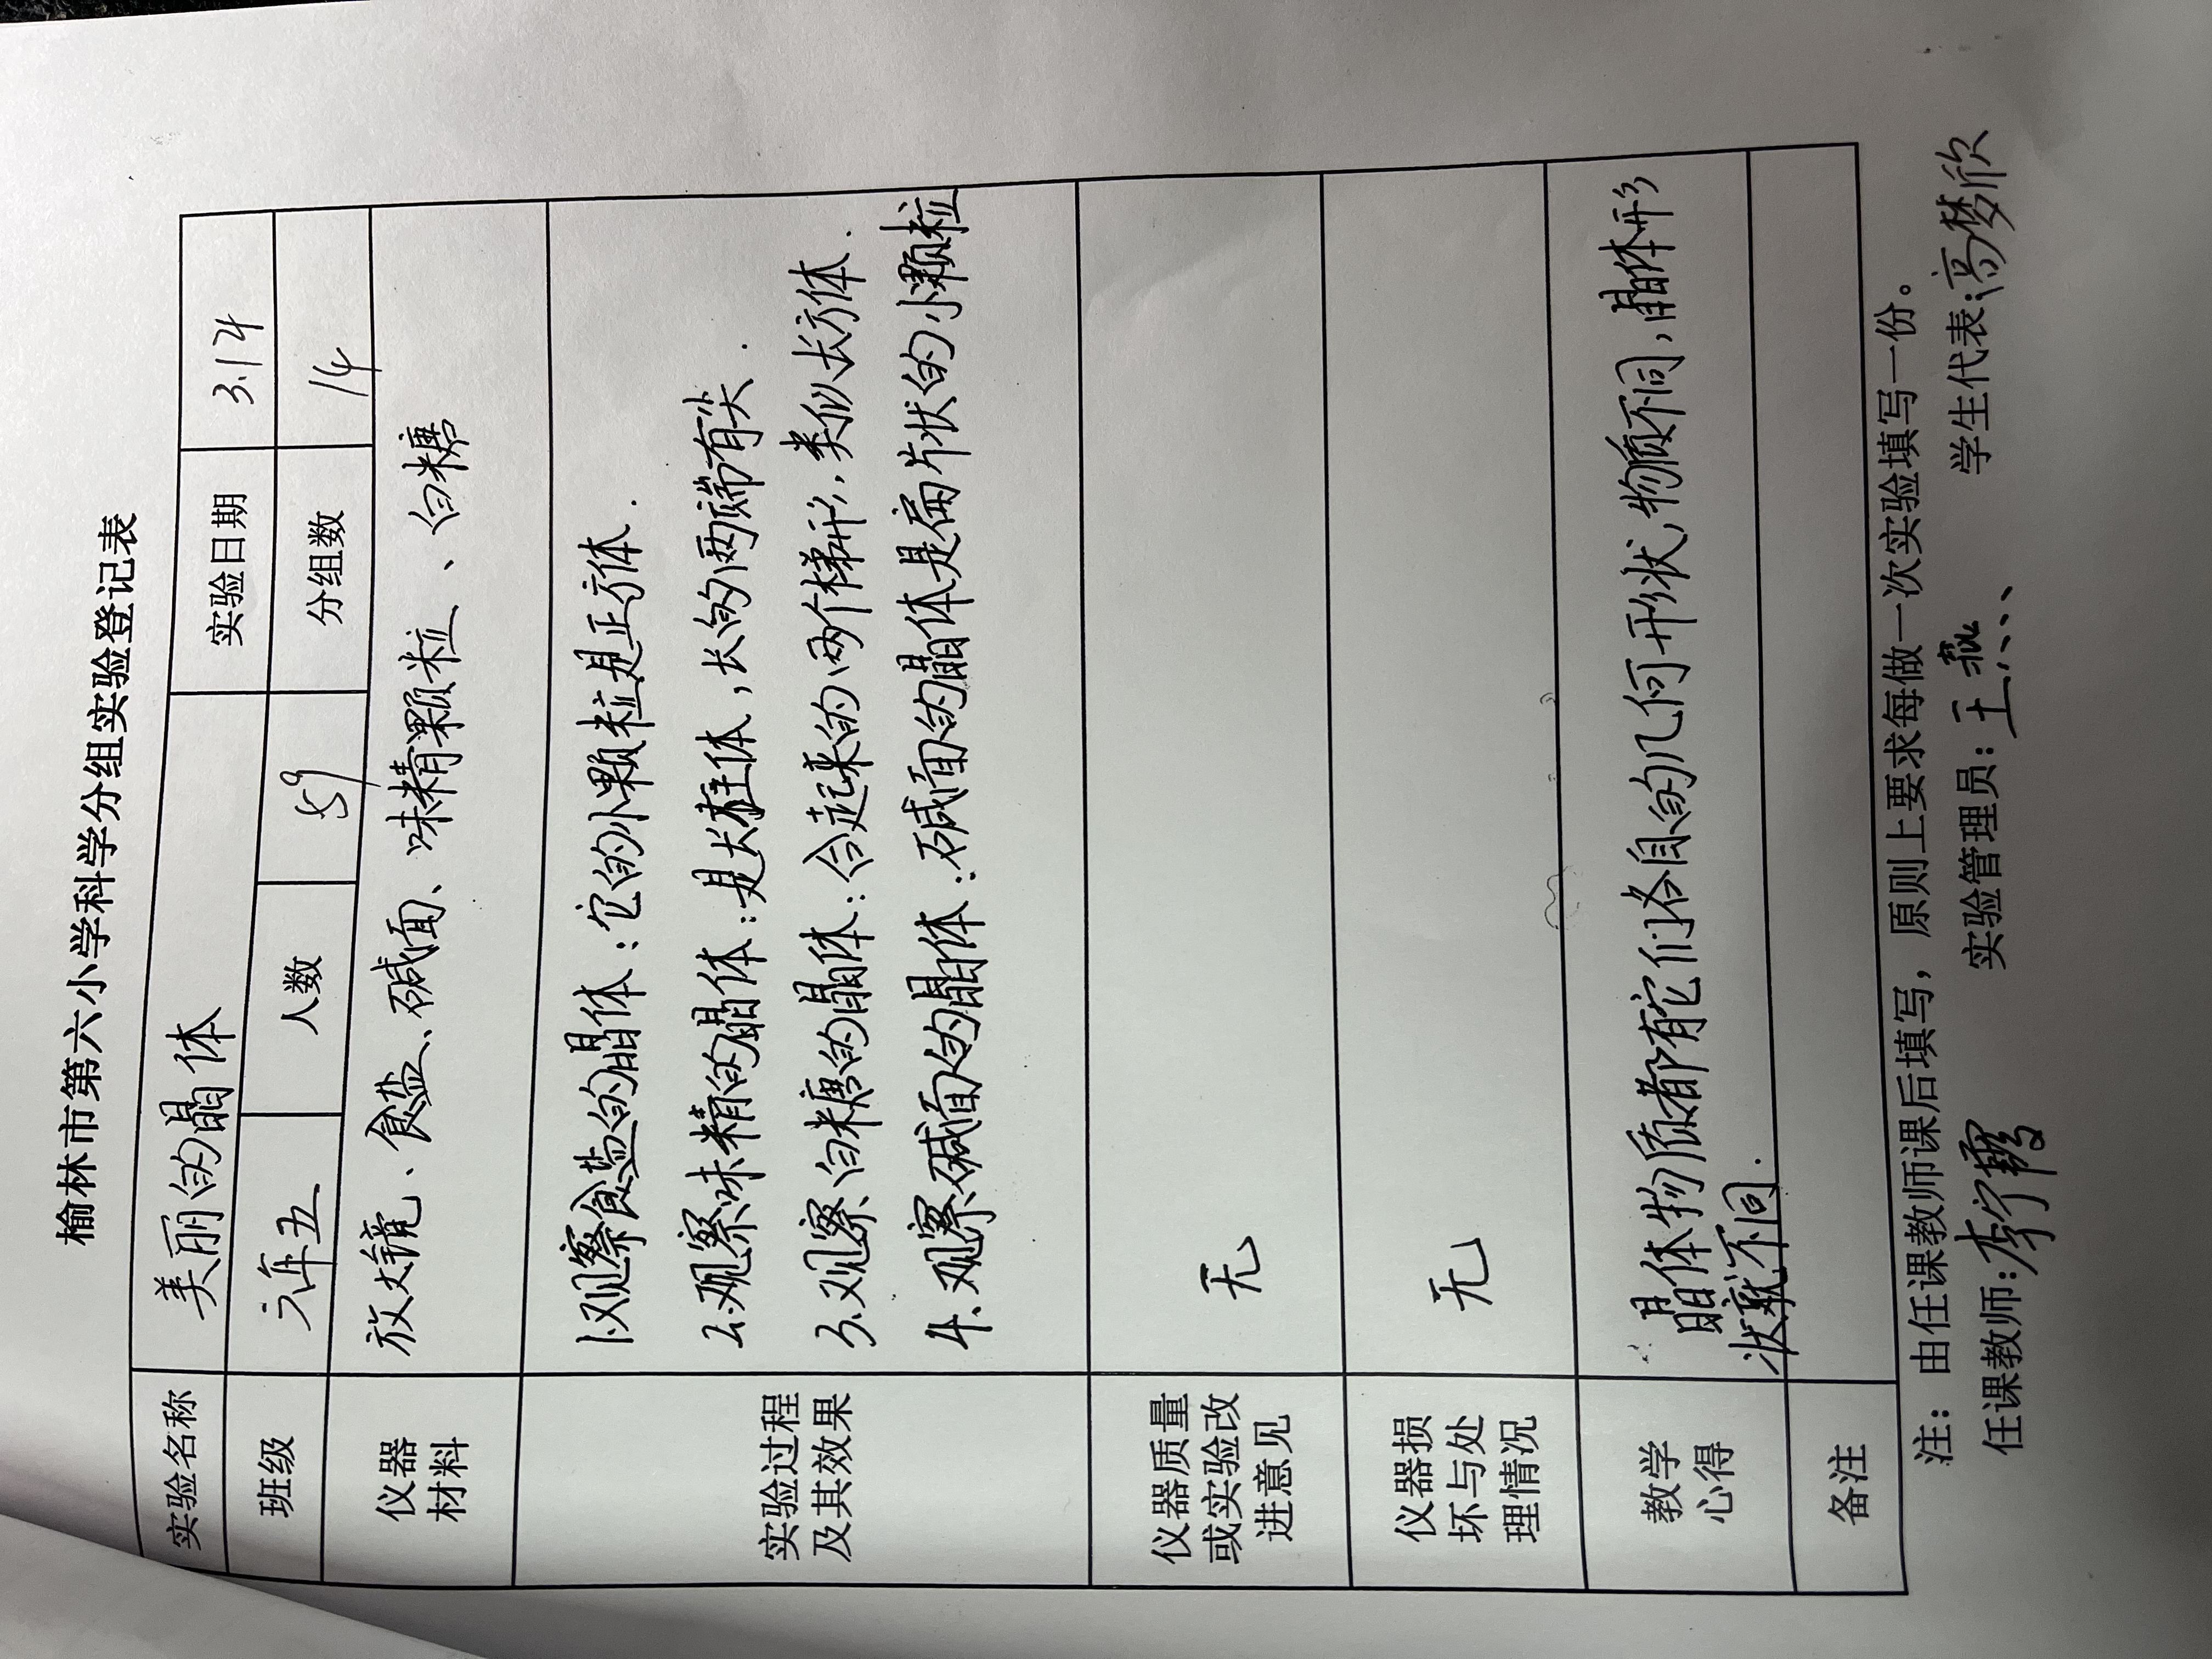 榆林市第六小学科学分组实验登记表
实验名称 美丽的晶体 实验日期 3.14
班级 六年五 人数 59 分组数 14
仪器
材料
放大镜、食盐、碱面、味精颗粒、白糖
实验过程
及其效果
1.观察食盐的晶体：它的小颗粒是正方体.
2.观察味精的晶体：是长柱体，长的两端有尖.
3.观察白糖的晶体：合起来的两个梯形，类似长方体.
4.观察碱面的晶体：碱面的晶体是扁片状的小颗粒
仪器质量
或实验改
进意见
无
仪器损
坏与处
理情况
无
教学
心得
晶体物质都有它们各自的几何形状，物质不同，晶体形
状就不同.
备注
注：由任课教师课后填写，原则上要求每做一次实验填写一份。
任课教师：李宁霞 实验管理员：王燕 学生代表：高梦欣